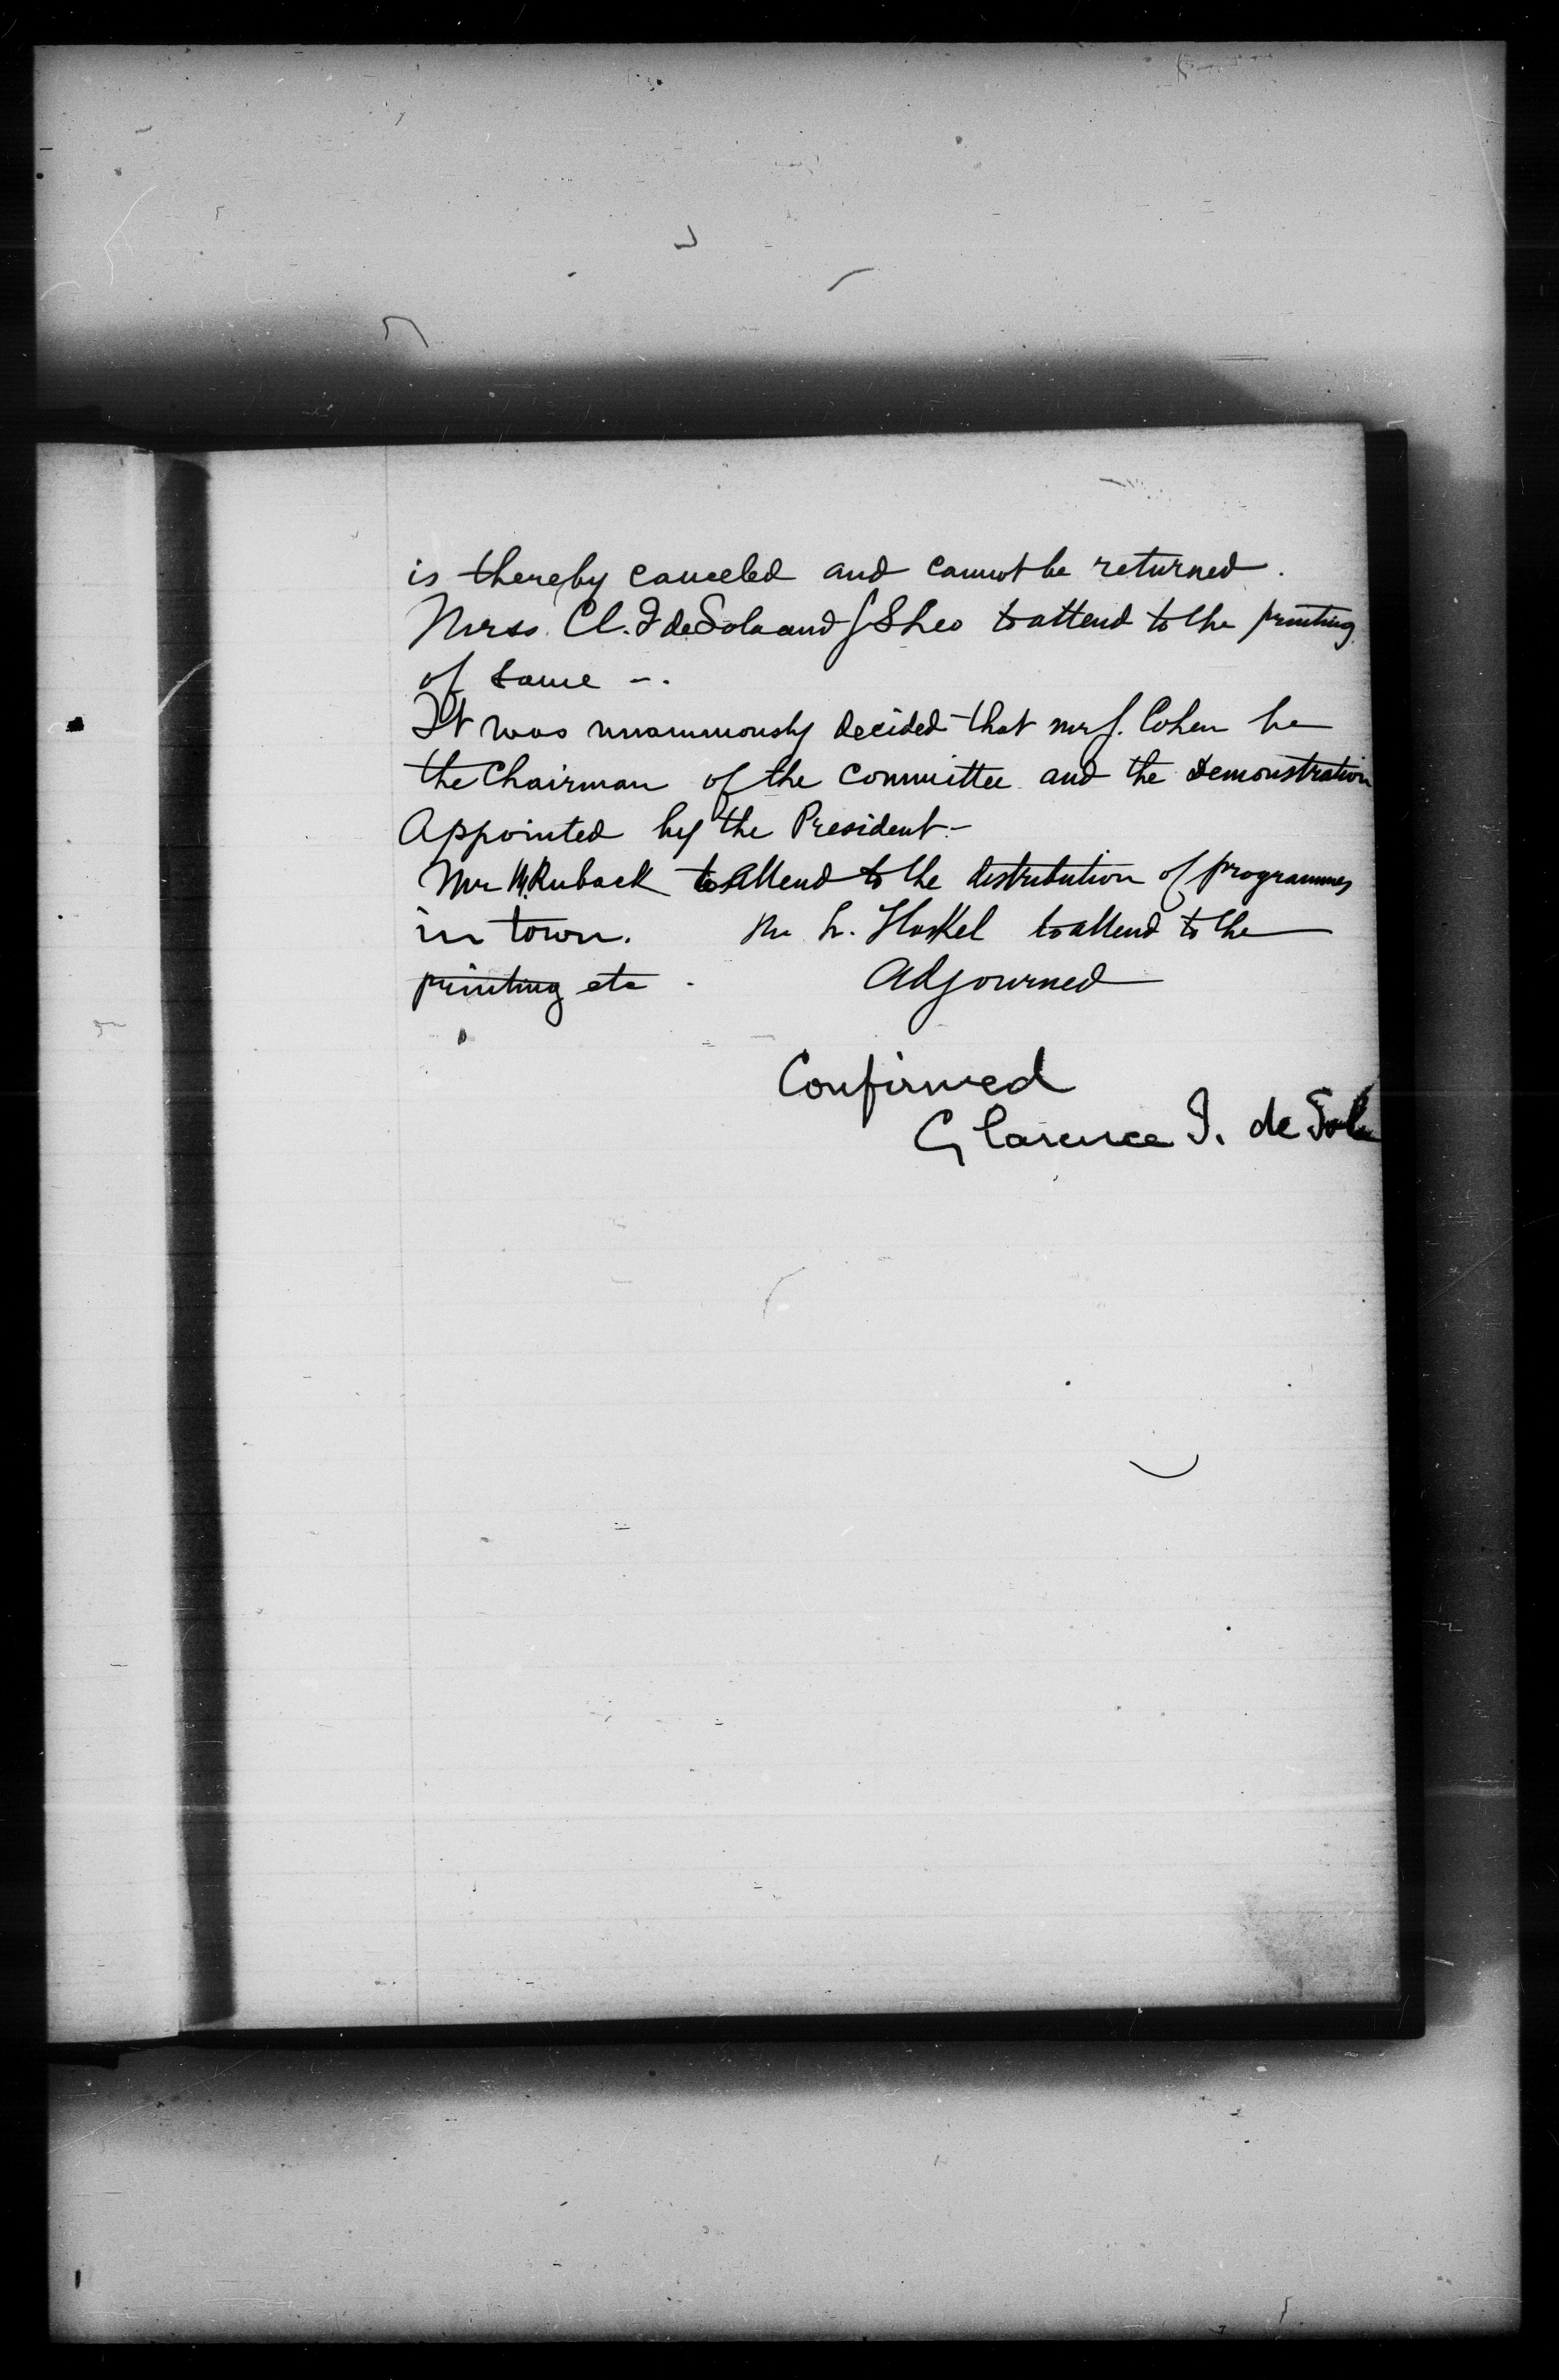 is thereby canceled and cannot be returned.
Mrss. Cl. I de Sola and J S Leo to attend to the printing
of same -.
It was unanimously decided that mr J. Cohen be
the Chairman of the Committee and the demonstration
Appointed by the President.-
Mr M. Ruback to attend to the distribution of programmes
in town. Mr L. Haskel to attend to the
printing etc. Adjourned
Confirmed
Clarence I. de Sola